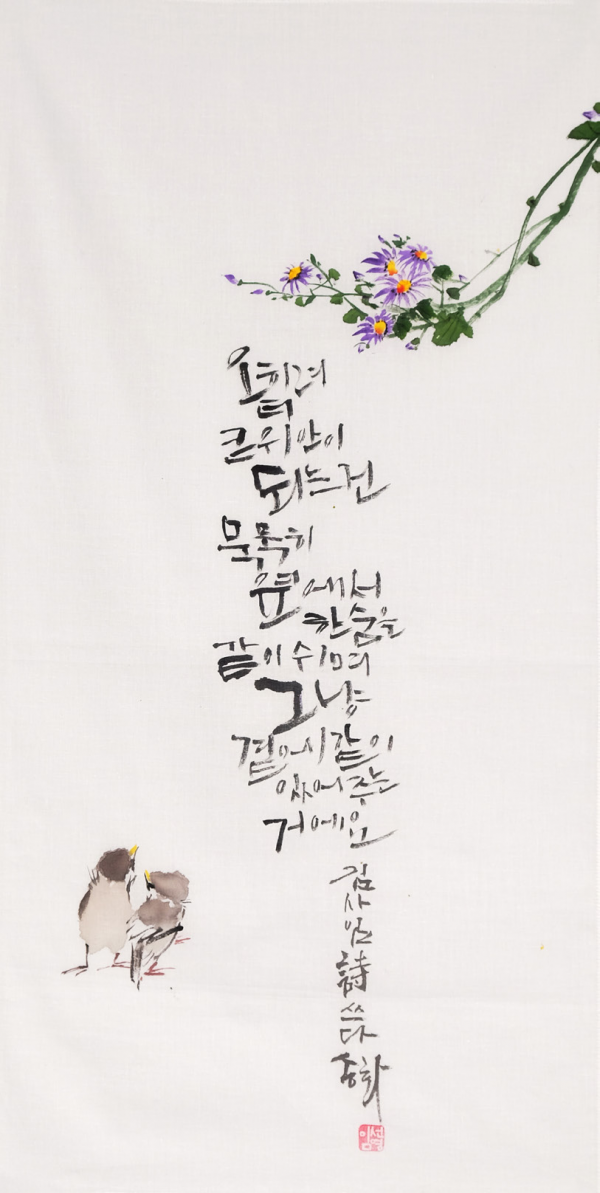 오히려
큰 위안이
되는 건
묵묵히
옆에서
한숨을
같이 쉬며
그냥
곁에서 같이
있어주는
거에요
김
사
인
詩
쓰
다
송화